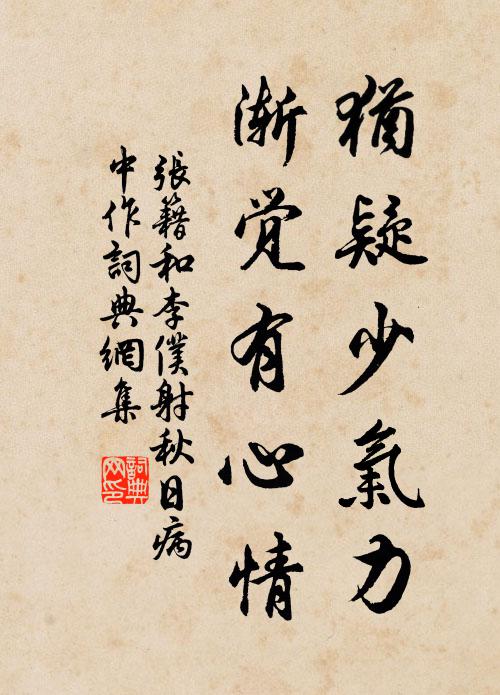 猶疑少氣力
渐觉有心情
張籍和李僕射秋日病
中作詞典網集
詞典
网印